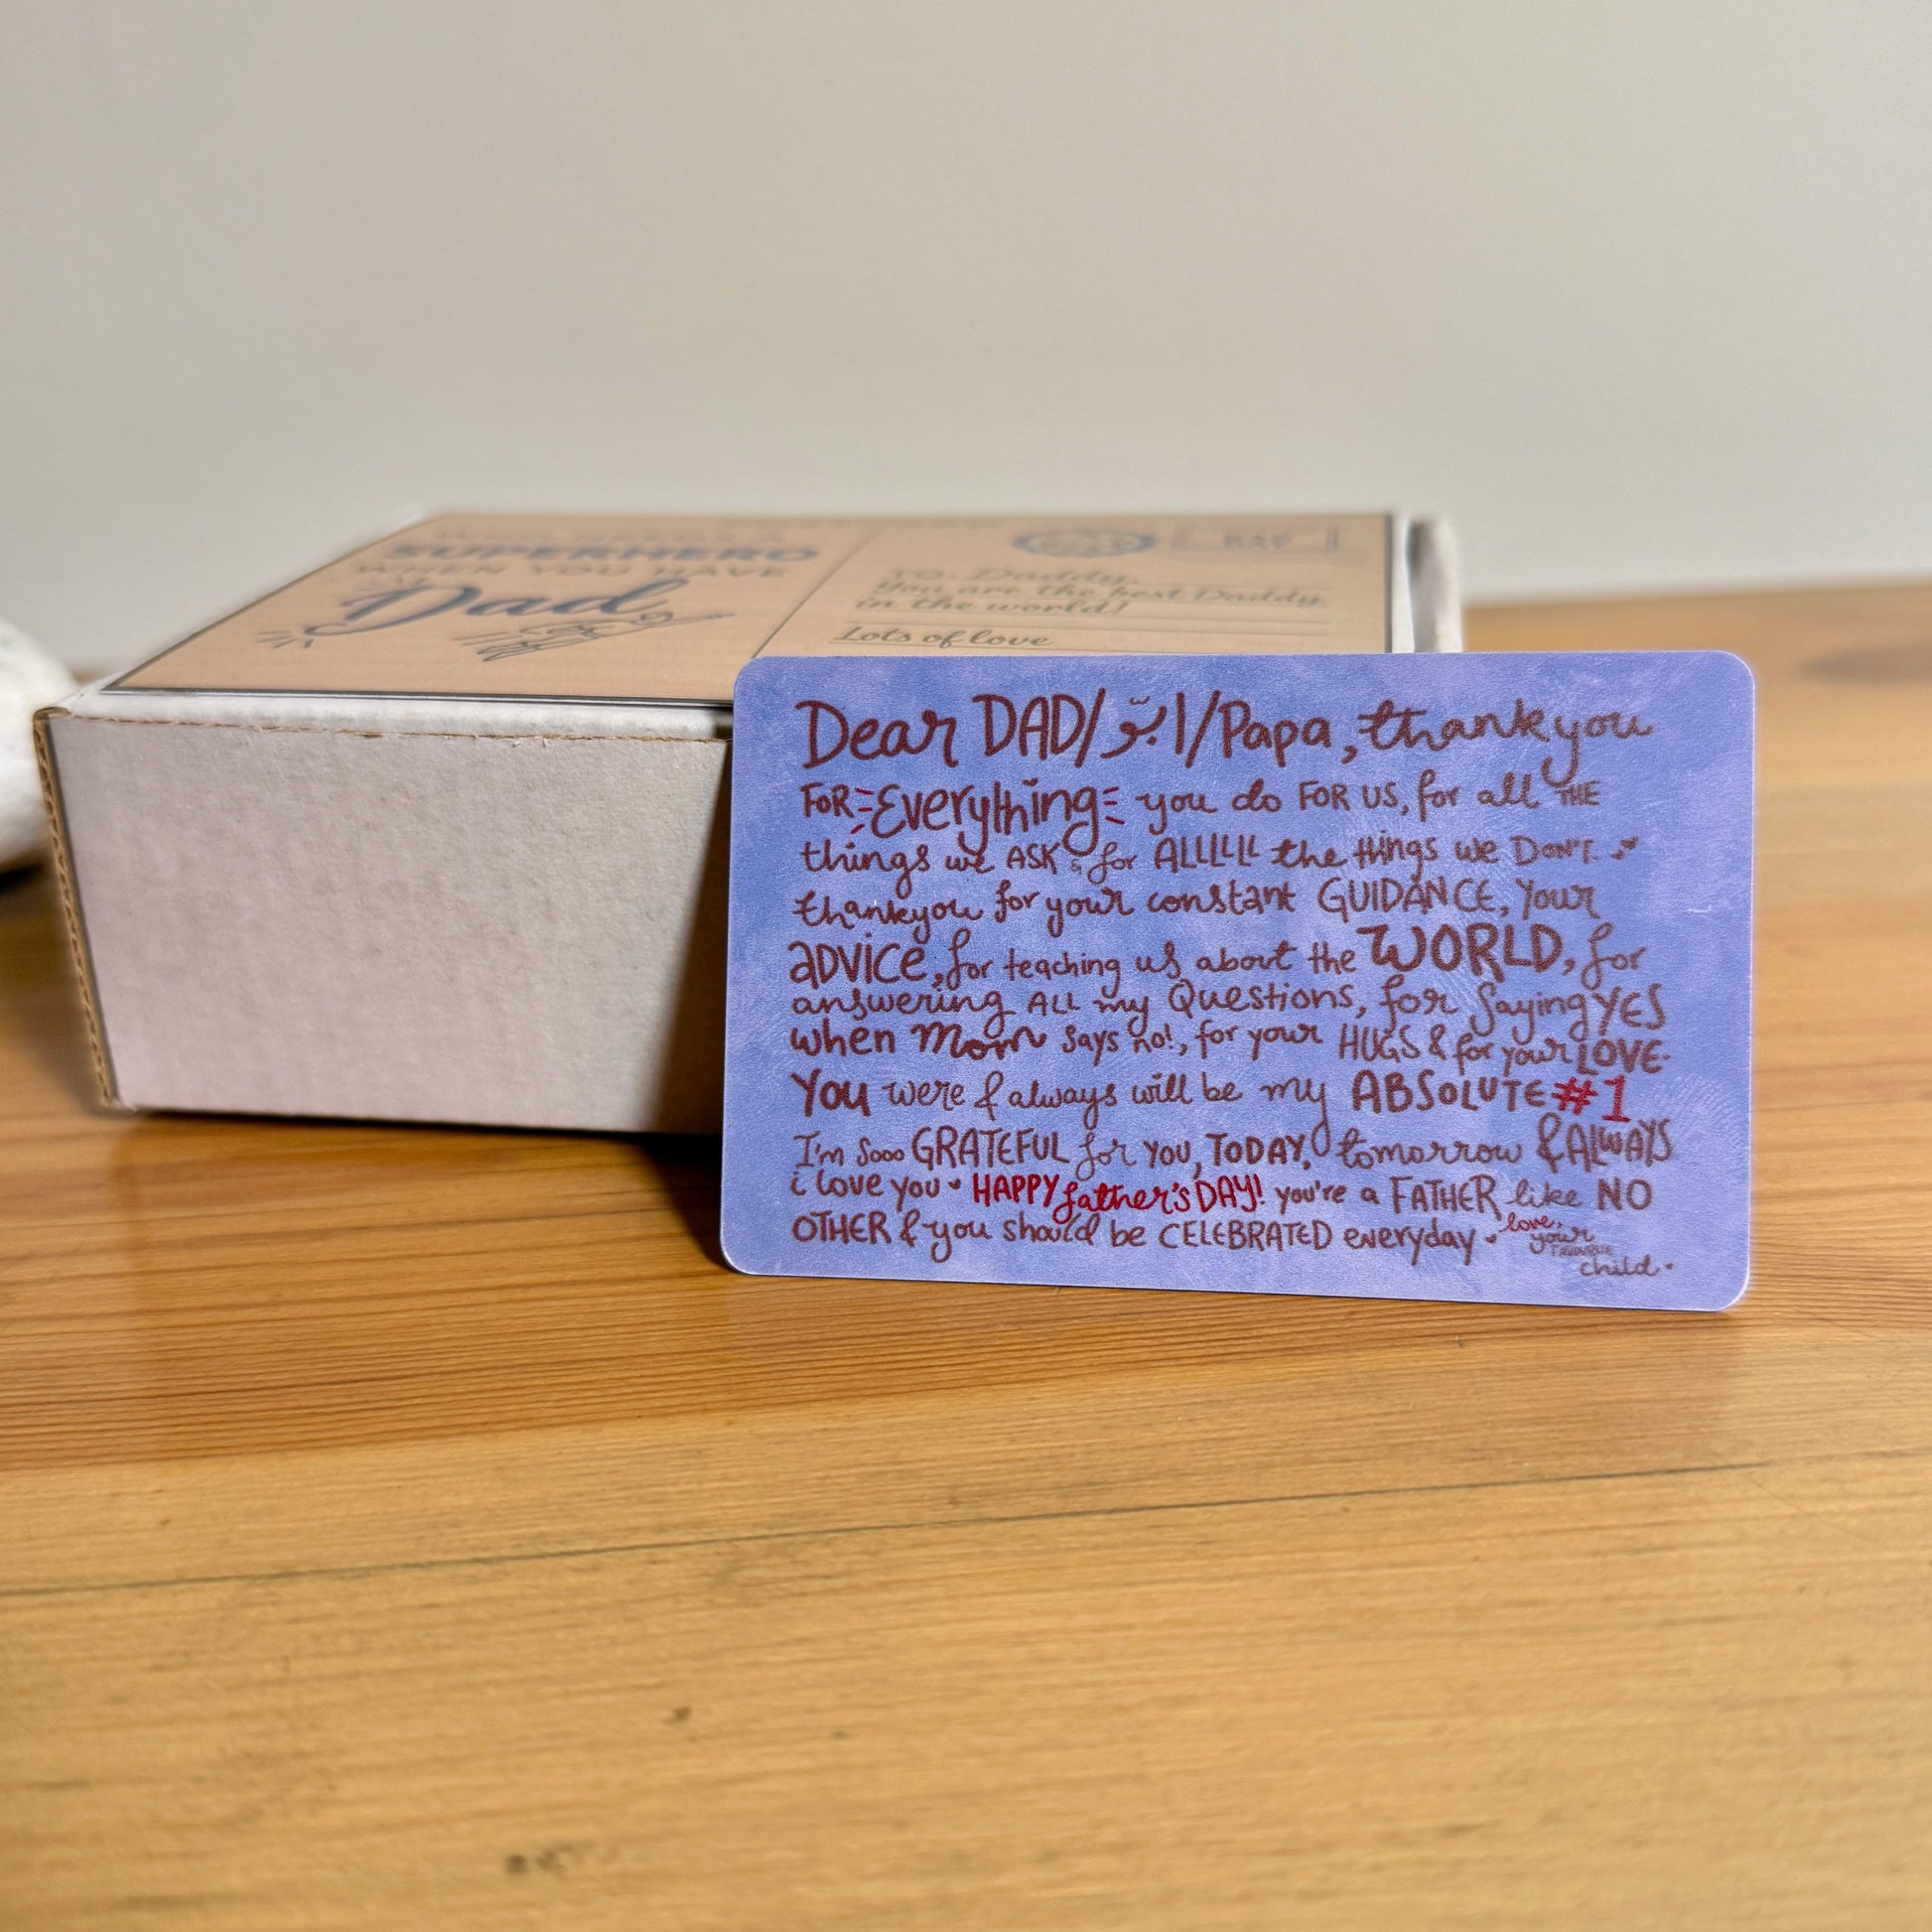 WHO NEEDS A
SUPERHERO
WHEN YOU HAVE
Dad
TO: Daddy
You are the best Daddy
in the world!
Lots of love
Dear DAD/ابويي/Papa, thankyou
FOR Everything you do FOR US, for all THE
things we ASK & for ALLLLLL the things we DON'T.
thankyou for your constant GUIDANCE, Your
ADVICE, for teaching us about the WORLD, for
answering ALL my Questions, for Saying YES
when Mom says no!, for your HUGS & for your LOVE.
YOU were & always will be my ABSOLUTE #1
I'm sooo GRATEFUL for YOU, TODAY, tomorrow & ALWAYS
i love you HAPPY father's DAY! you're a FATHER like NO
OTHER & you should be CELEBRATED everyday love,
your
FAVOURITE
child